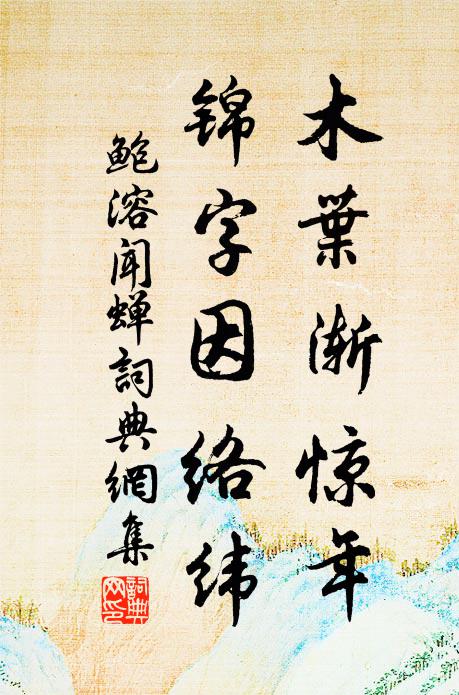 木葉渐惊年
锦字因络纬
鲍溶闻蝉詞典網集
詞典網印